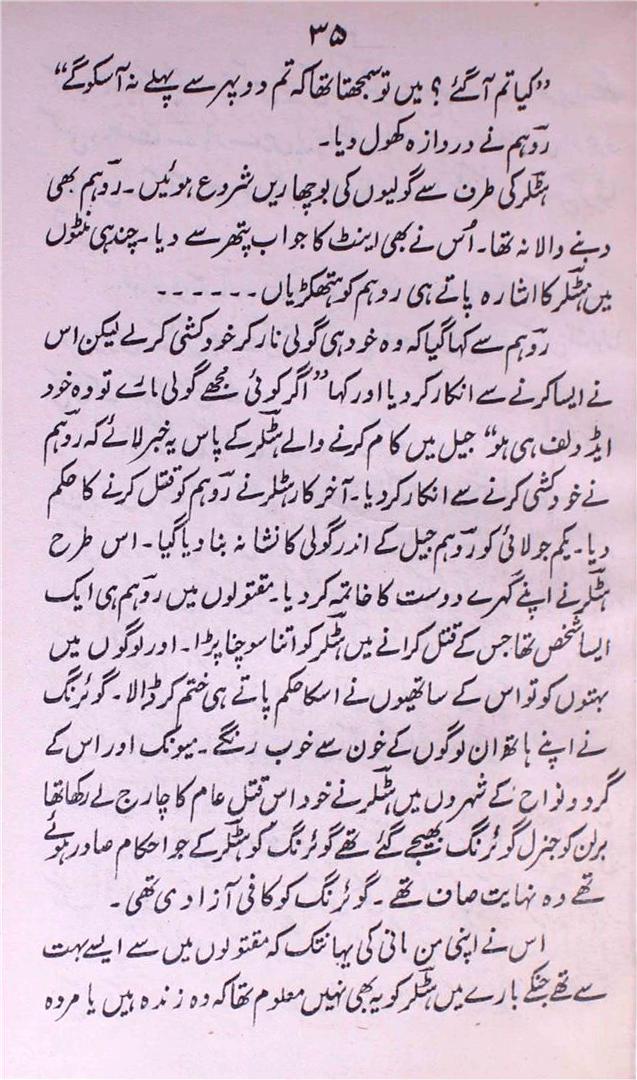 ۳۵
”کیا تم آ گئے ؟ میں تو سمجھتا تھا کہ تم دوپہر سے پہلے نہ آ سکو گے“
روہم نے دروازہ کھول دیا۔
ہٹلر کی طرف سے گولیوں کی بوچھاریں شروع ہوئیں۔ روہم بھی
دبنے والا نہ تھا۔ اُس نے بھی اینٹ کا جواب پتھر سے دیا۔ چند ہی منٹوں
میں ہٹلر کا اشارہ پاتے ہی روہم کو ہتھکڑیاں ۔۔۔۔۔۔
روہم سے کہا گیا کہ وہ خود ہی گولی مار کر خودکشی کر لے لیکن اس
نے ایسا کرنے سے انکار کر دیا اور کہا ”اگر کوئی مجھے گولی مارے تو وہ خود
ایڈولف ہی ہو“ جیل میں کام کرنے والے ہٹلر کے پاس یہ خبر لائے کہ روہم
نے خودکشی کرنے سے انکار کر دیا۔ آخر کار ہٹلر نے روہم کو قتل کرنے کا حکم
دیا۔ یکم جولائی کو روہم جیل کے اندر گولی کا نشانہ بنا دیا گیا۔ اس طرح
ہٹلر نے اپنے گہرے دوست کا خاتمہ کر دیا۔ مقتولوں میں روہم ہی ایک
ایسا شخص تھا جس کے قتل کرانے میں ہٹلر کو اتنا سوچنا پڑا۔ اور لوگوں میں
بہتوں کو تو اس کے ساتھیوں نے اسکا حکم پاتے ہی ختم کر ڈالا۔ گوئرنگ
نے اپنے ہاتھ ان لوگوں کے خون سے خوب رنگے۔ میونک اور اس کے
گرد و نواح کے شہروں میں ہٹلر نے خود اس قتل عام کا چارج لے رکھا تھا
برلن کو جنرل گوئرنگ بھیجے گئے تھے گوئرنگ کو ہٹلر کے جو احکام صادر ہوئے
تھے وہ نہایت صاف تھے۔ گوئرنگ کو کافی آزادی تھی۔
اس نے اپنی من مانی کی یہانتک کہ مقتولوں میں سے ایسے بہت
سے تھے جنکے بارے میں ہٹلر کو یہ بھی نہیں معلوم تھا کہ وہ زندہ ہیں یا مردہ